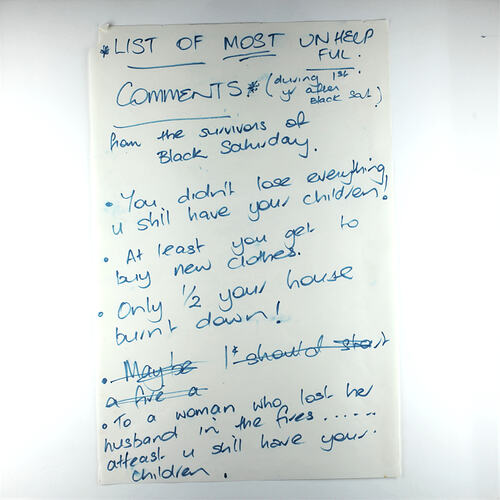 *LIST OF MOST UNHELP
FUL.
COMMENTS* (during 1st
yr after
Black Sat.)
from the survivors of
Black Saturday.
• You didn't lose everything,
u still have your children!
• At least you get to
buy new clothes.
• Only 1/2 your house
burnt down!
• Maybe I* should start
a fire a
• To a woman who lost her
husband in the fires......
atleast u still have your
children.